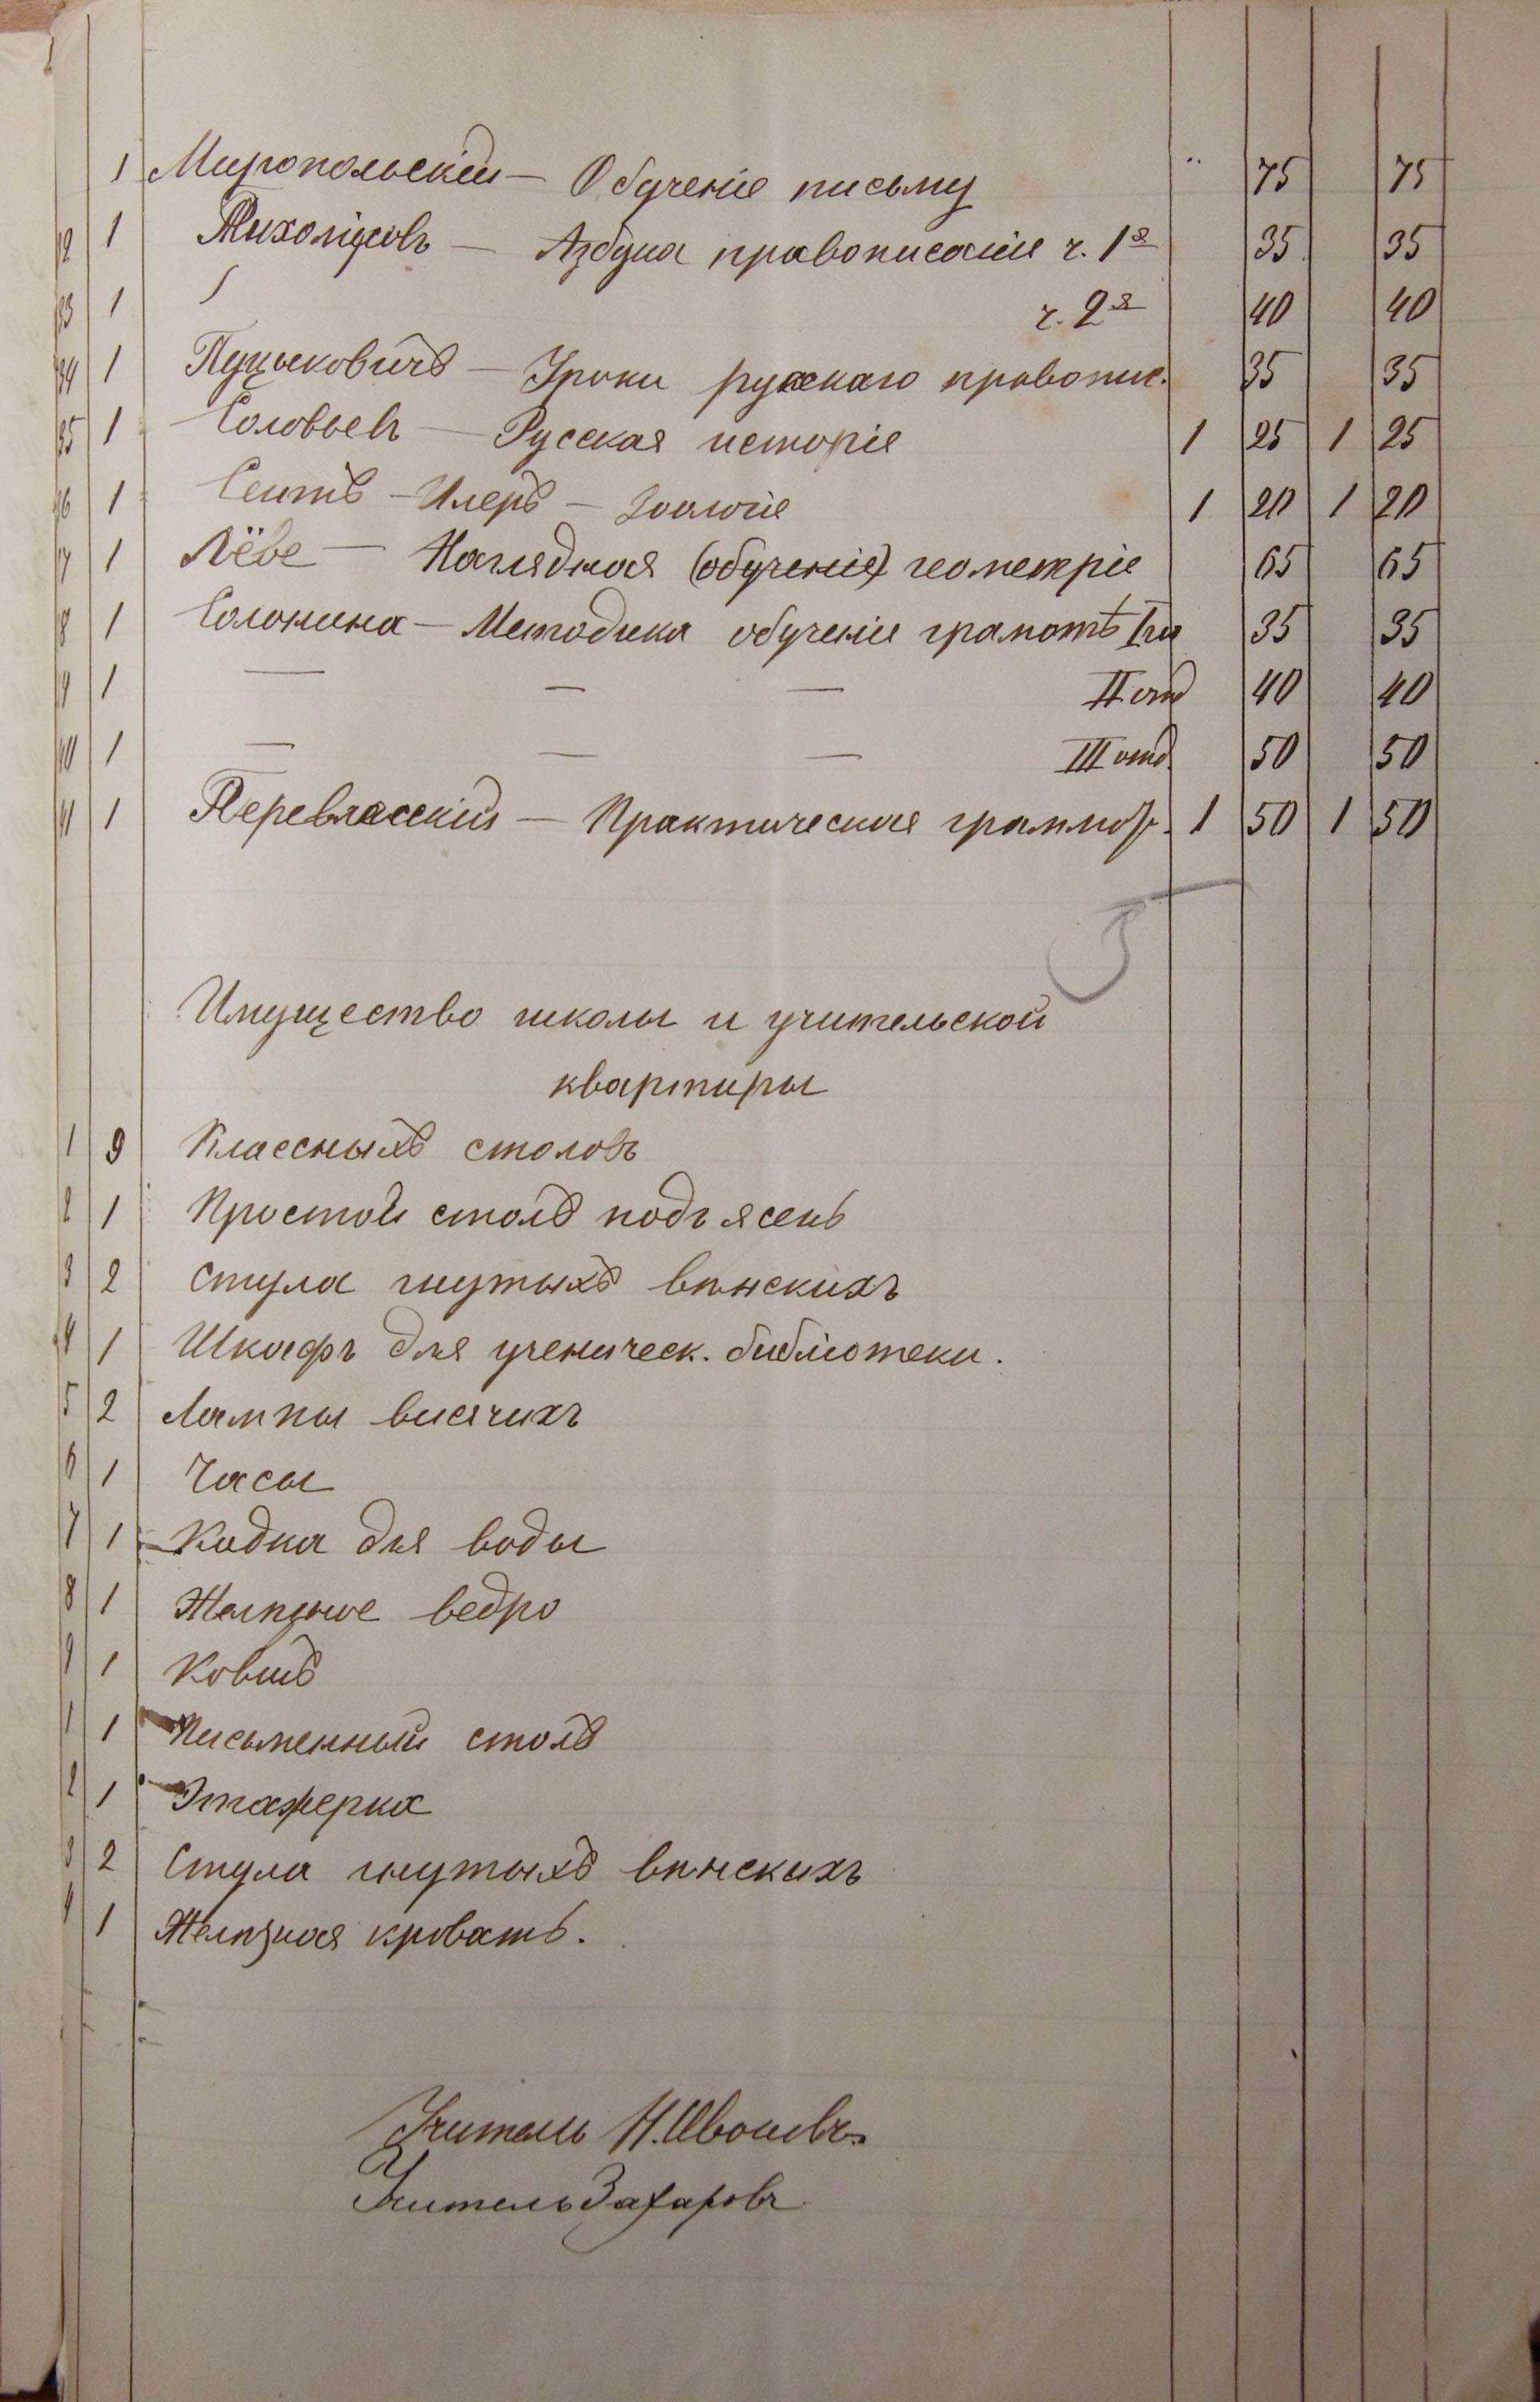 1 Миропольскій — Обученіе письму " 75 75
32 1 Тихомировъ — Азбука правописанія ч. 1я 35 35
33 1 ч. 2я 40 40
34 1 Пуцыковичъ — Уроки русскаго правопис. 35 35
35 1 Соловьевъ — Русская исторія 1 25 1 25
36 1 Сентъ-Илеръ — Зоологія 1 20 1 20
7 1 Лёве — Наглядная (обученія) геометрія 65 65
8 1 Солонина — Методика обученія грамотѣ I 35 35
9 1 — — — II отд 40 40
40 1 — — — III отд. 50 50
41 1 Перевлесскій — Практическая граммат. 1 50 1 50
Имущество школы и учительской
квартиры
1 9 Классныхъ столовъ
2 1 Простой столъ подъ ясень
3 2 Стула гнутыхъ вѣнскихъ
4 1 Шкафъ для ученическ. библіотеки.
5 2 Лампы висячихъ
6 1 Часы
7 1 Кадка для воды
8 1 Желѣзное ведро
9 1 Ковшъ
1 1 Письменный столъ
2 1 Этажерка
3 2 Стула гнутыхъ вѣнскихъ
4 1 Желѣзная кровать.
Учитель Н. Ивановъ.
Учитель Захаровъ